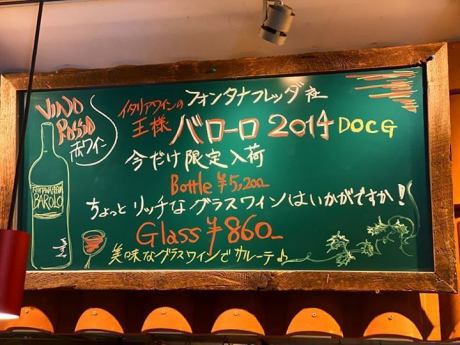 VINO
ROSSO
赤ワイン
イタリアワインの
王様
フォンタナフレッダ社
バローロ 2014 DOCG
今だけ限定入荷
Bottle ¥5,200-
ちょっとリッチなグラスワインはいかがですか!
Glass ¥860-
美味なグラスワインでカルーテ♪
FONTANAFREDDA
BAROLO